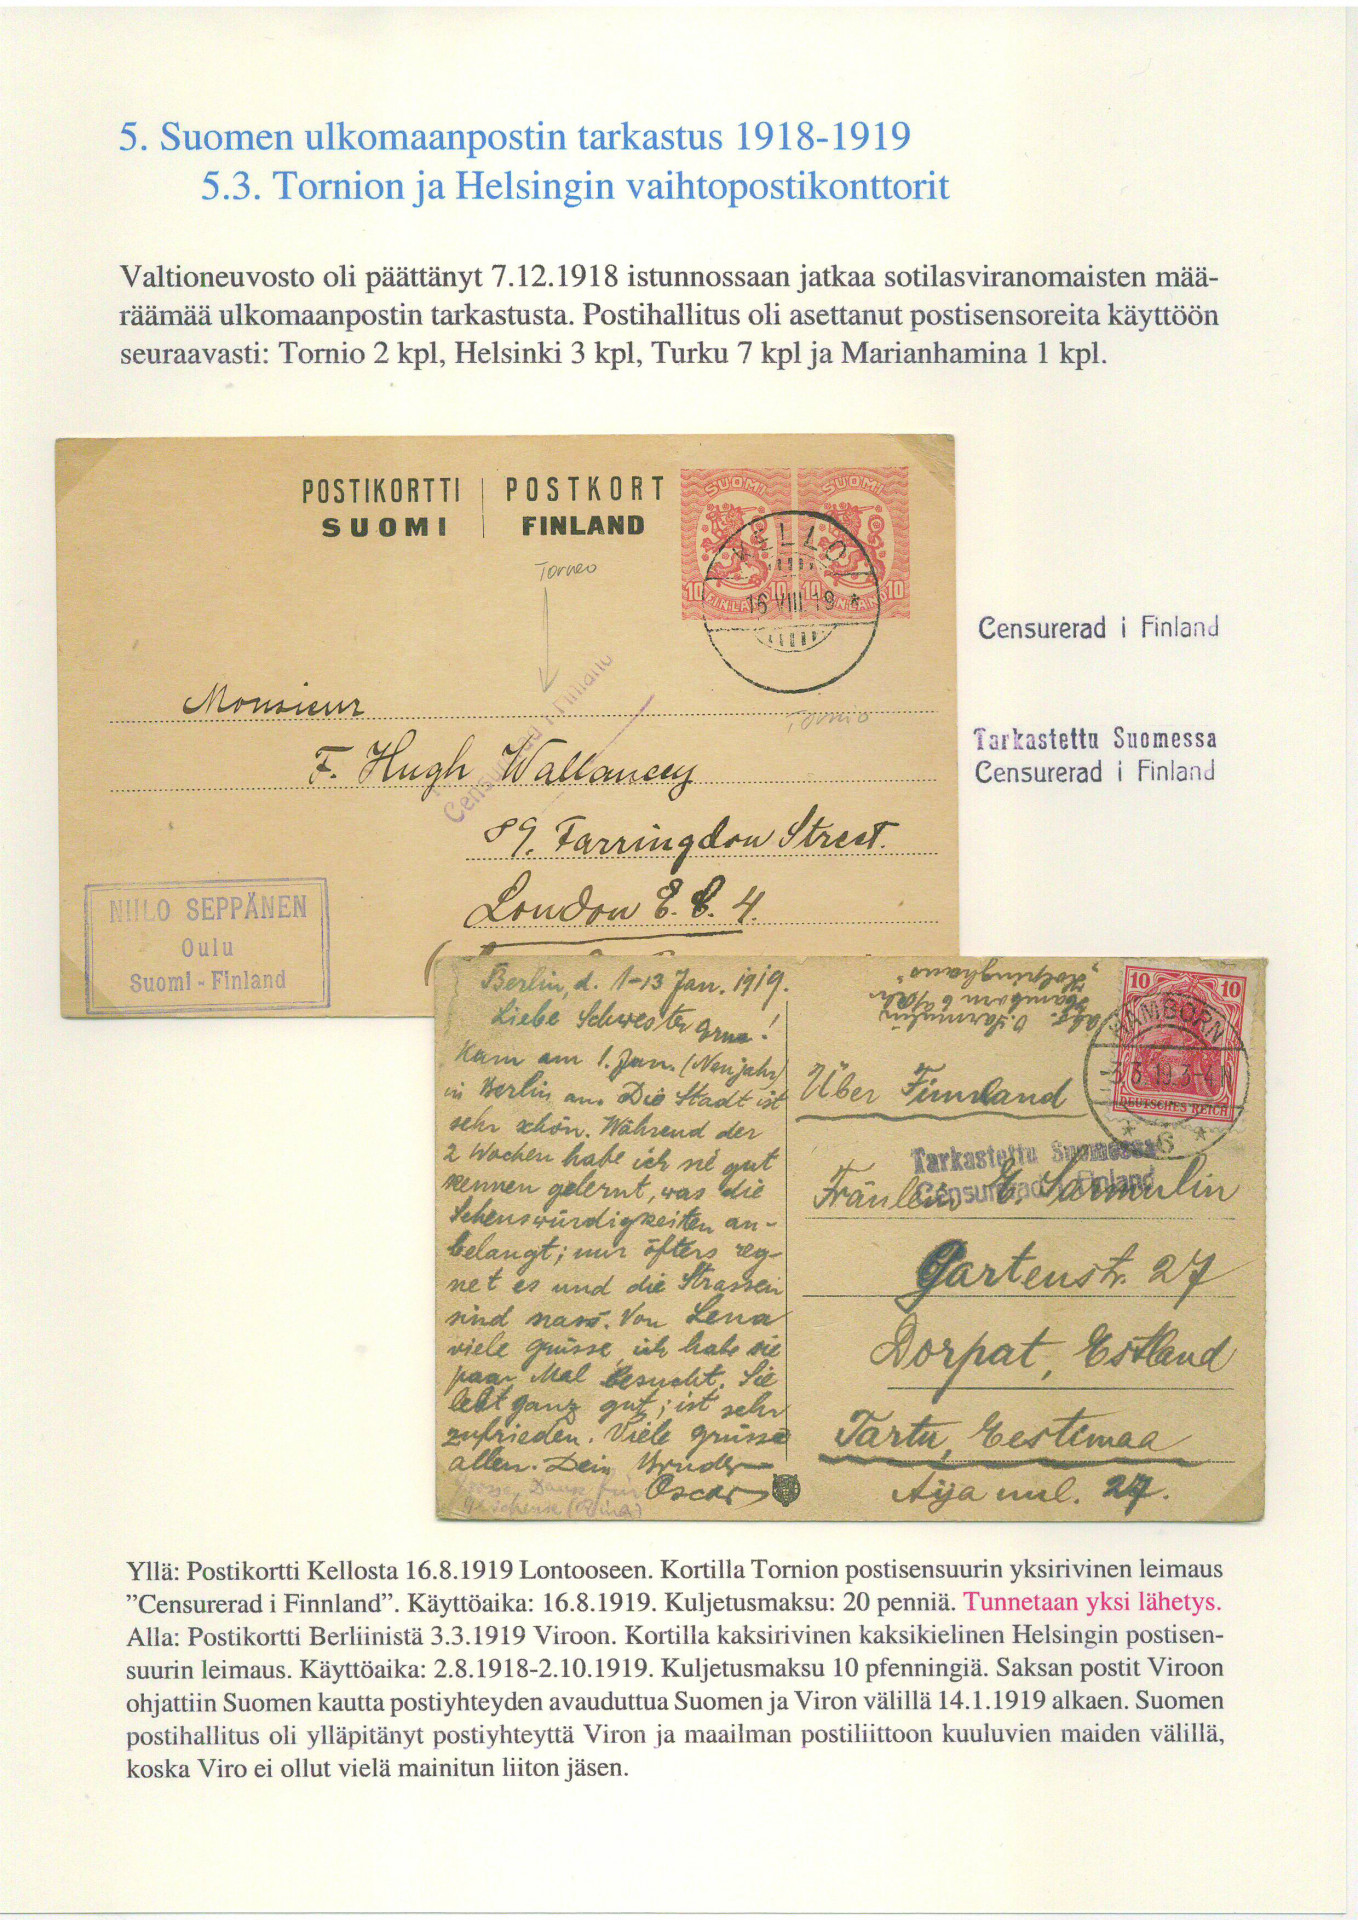 5. Suomen ulkomaanpostin tarkastus 1918-1919
5.3. Tornion ja Helsingin vaihtopostikonttorit
Valtioneuvosto oli päättänyt 7.12.1918 istunnossaan jatkaa sotilasviranomaisten mää-
räämää ulkomaanpostin tarkastusta. Postihallitus oli asettanut postisensoreita käyttöön
seuraavasti: Tornio 2 kpl, Helsinki 3 kpl, Turku 7 kpl ja Marianhamina 1 kpl.
POSTIKORTTI | POSTKORT
SUOMI | FINLAND
SUOMI SUOMI
10 10 10 10
FINLAND FINLAND
KELLO
16 VIII 19 *
Torneo
Censurerad i Finland
Tornio
Monsieur
F. Hugh Wallancey
89. Farringdon Street.
London E.C. 4.
NIILO SEPPÄNEN
Oulu
Suomi - Finland
Censurerad i Finland
Tarkastettu Suomessa
Censurerad i Finland
Berlin, d. 1-13 Jan. 1919.
Liebe Schwester Erna!
Kam am 1. Jan. (Neujahr)
in Berlin an. Die Stadt ist
sehr schön. Während der
2 Wochen habe ich sie gut
kennen gelernt, was die
Sehenswürdigkeiten an-
belangt; nur öfters reg-
net es und die Strassen
sind nass. Von Lena
viele grüsse, ich habe sie
paar Mal besucht. Sie
lebt ganz gut; ist sehr
zufrieden. Viele grüsse
allen. Dein Bruder
Oscar
Abs. O. Sarmulin
Hamborn
"Kolpinghaus"
10 10
DEUTSCHES REICH
HAMBORN
-3.3.19.3-4N
* 6 *
Über Finnland
Tarkastettu Suomessa
Censurerad i Finland
Fräulein E. Sarmulin
Gartenstr. 27
Dorpat, Estland
Tartu, Eestimaa
Aija uul. 27.
Yllä: Postikortti Kellosta 16.8.1919 Lontooseen. Kortilla Tornion postisensuurin yksirivinen leimaus
”Censurerad i Finnland”. Käyttöaika: 16.8.1919. Kuljetusmaksu: 20 penniä. Tunnetaan yksi lähetys.
Alla: Postikortti Berliinistä 3.3.1919 Viroon. Kortilla kaksirivinen kaksikielinen Helsingin postisen-
suurin leimaus. Käyttöaika: 2.8.1918-2.10.1919. Kuljetusmaksu 10 pfenningiä. Saksan postit Viroon
ohjattiin Suomen kautta postiyhteyden avauduttua Suomen ja Viron välillä 14.1.1919 alkaen. Suomen
postihallitus oli ylläpitänyt postiyhteyttä Viron ja maailman postiliittoon kuuluvien maiden välillä,
koska Viro ei ollut vielä mainitun liiton jäsen.